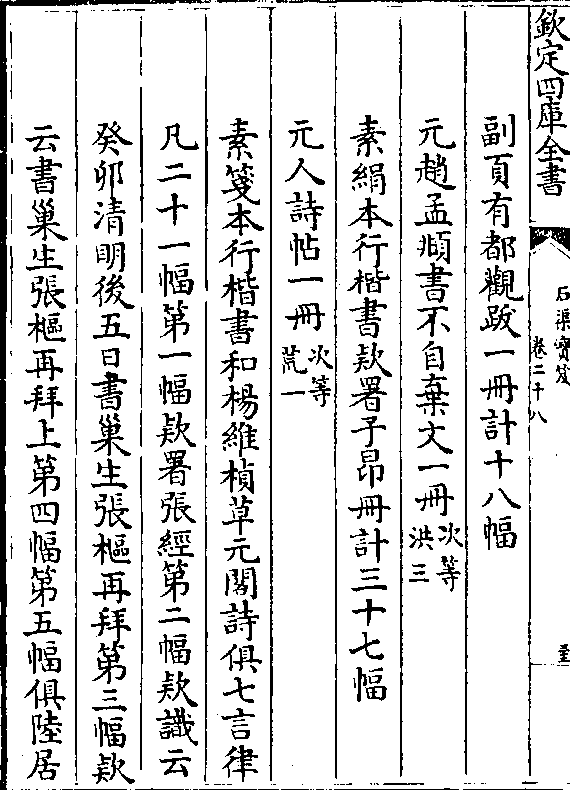 欽定四庫全書
石渠寶笈
卷二十八
副頁有都觀跋一冊計十八幅
元趙孟頫書不自棄文一冊次等洪三
素絹本行楷書欵署子昂冊計三十七幅
元人詩帖一冊次等荒一
素箋本行楷書和楊維楨草元閣詩俱七言律
凡二十一幅第一幅欵署張經第二幅欵識云
癸卯清明後五日書巢生張樞再拜第三幅欵
云書巢生張樞再拜上第四幅第五幅俱陸居